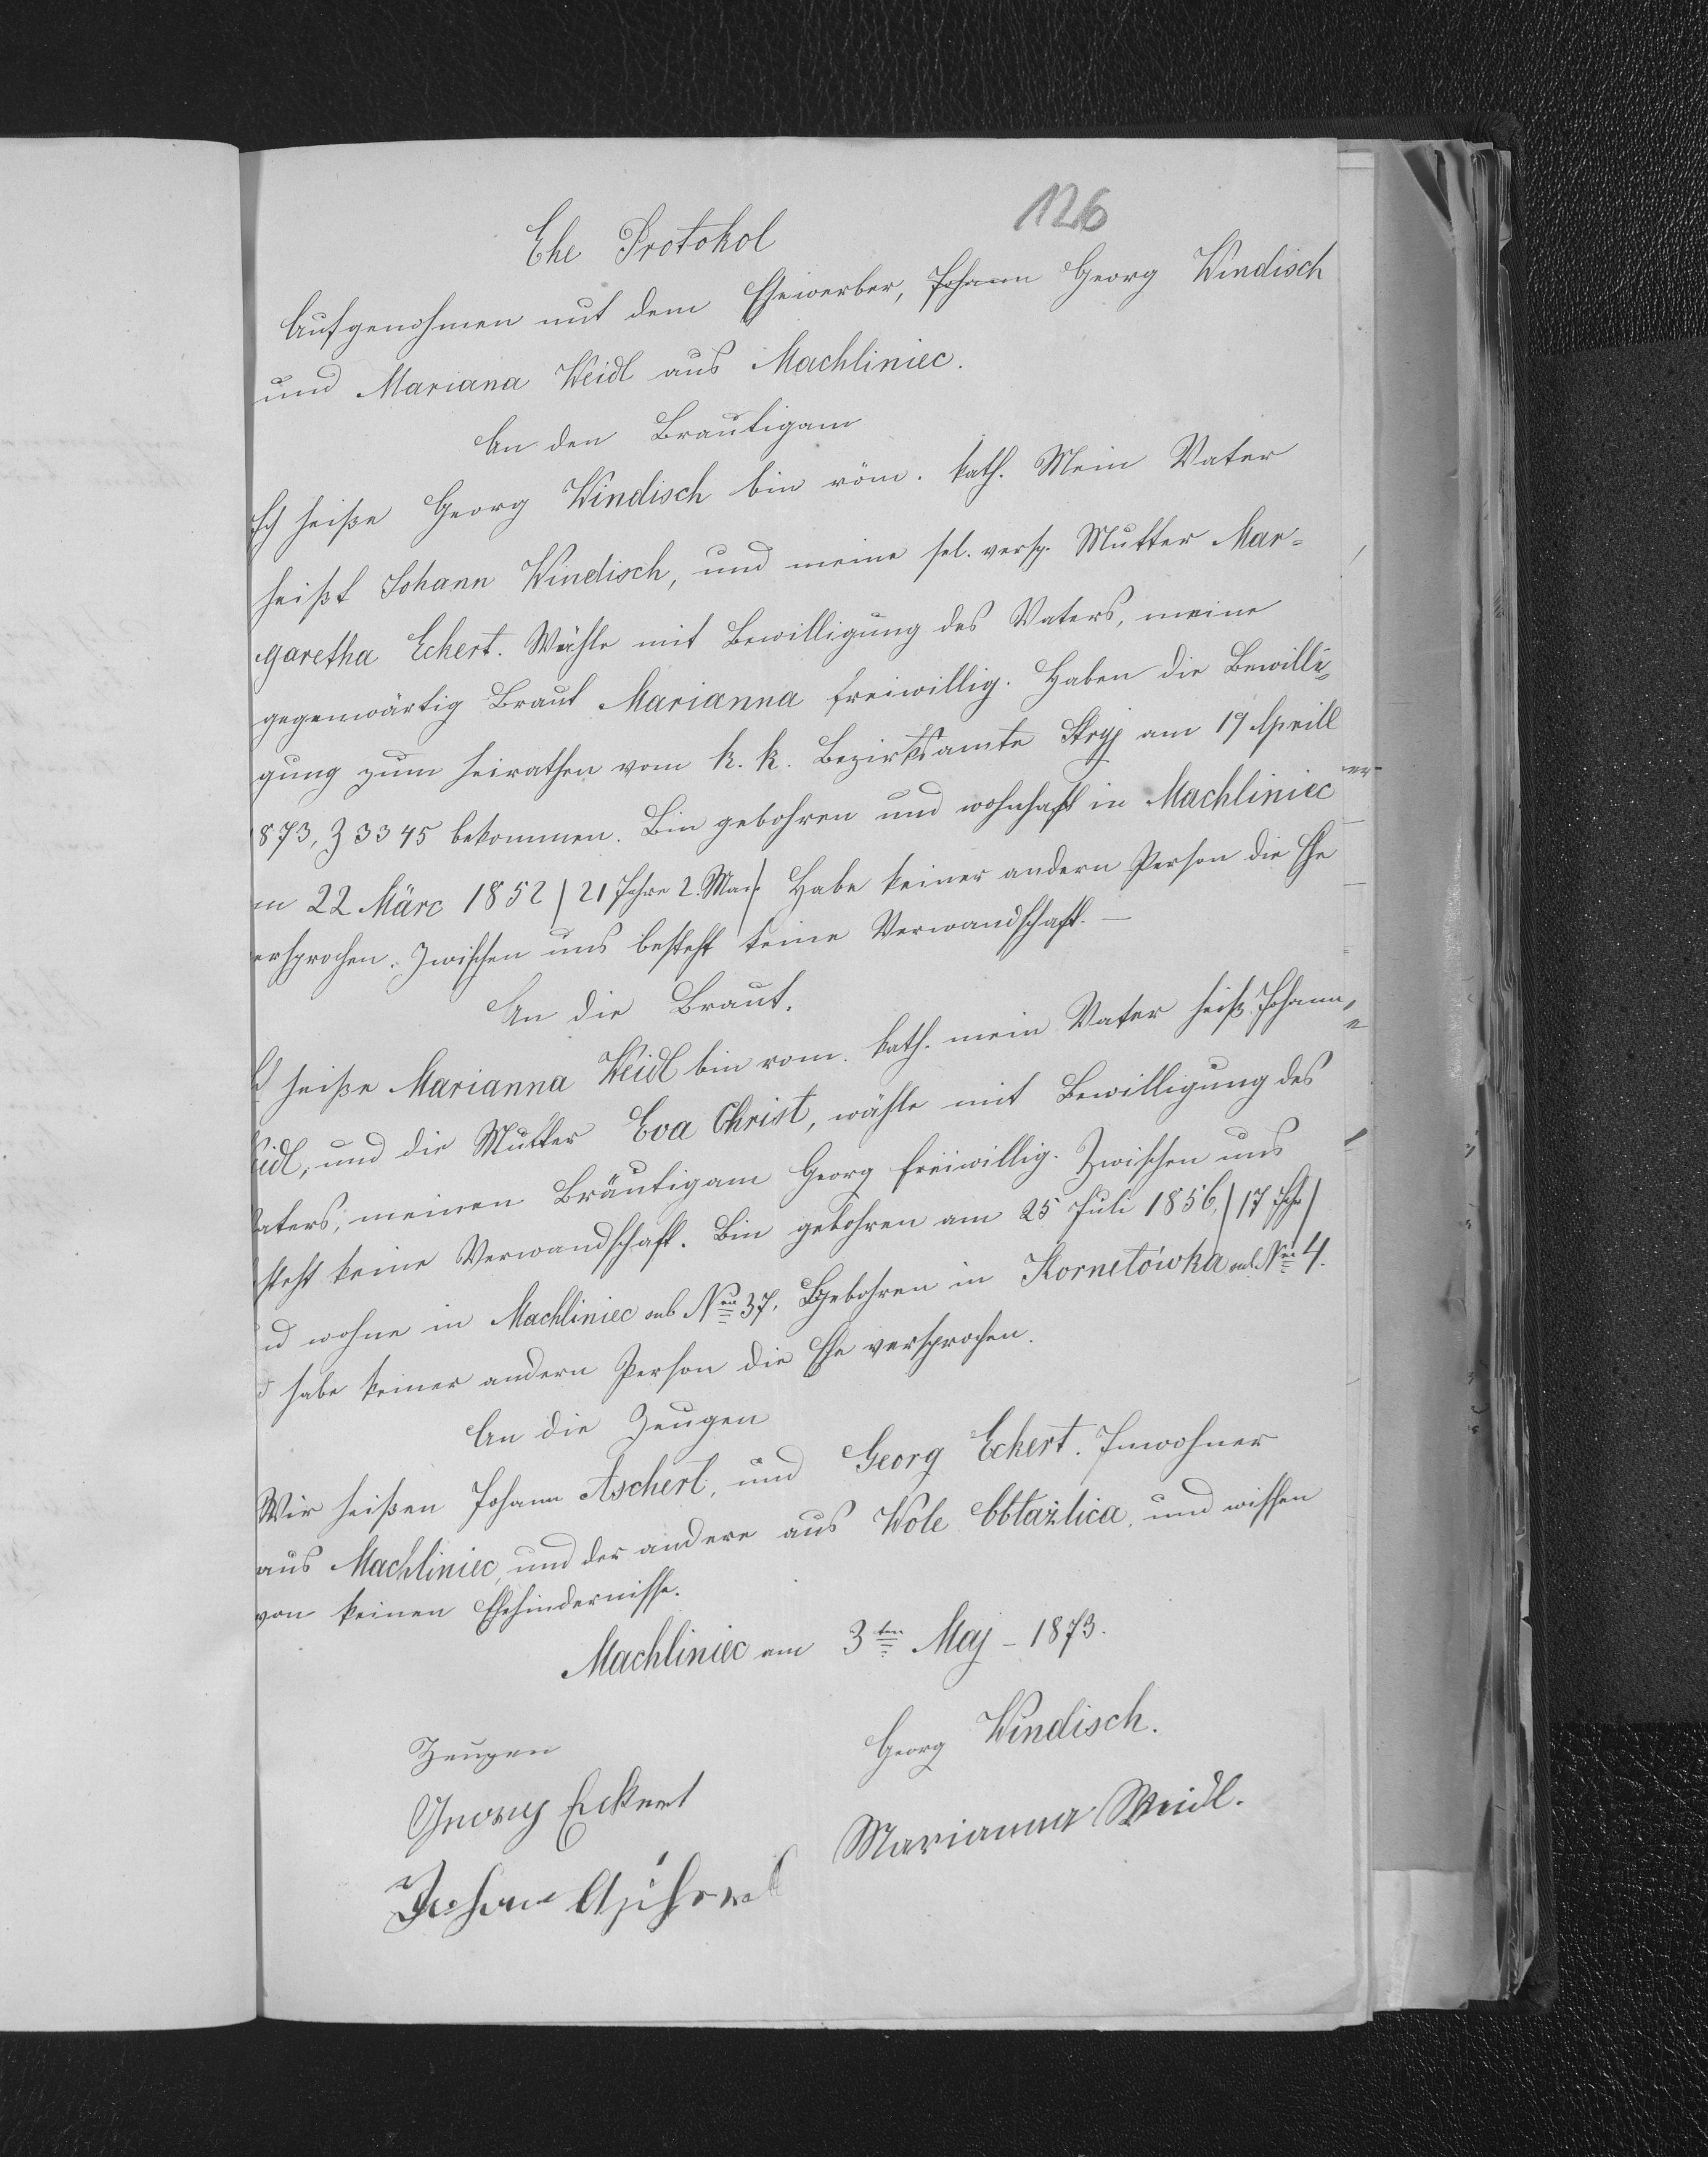 126
Ehe Protokol
Aufgenohmen mit dem Ehewerber, Johann Georg Windisch
und Mariana Weidl aus Machliniec.
An den Brautigam
Ich heiße Georg Windisch bin röm. kath. Mein Vater
heißt Johann Windisch, und meine sel. versp. Mutter Mar-
garetha Eckert. Wähle mit Bewilligung des Vaters, meine
gegenwärtig Braut Marianna freiwillig. Haben die Bewilli-
gung zum heirathen vom k. k. Bezirksamte Stryj am 19 Aprill
1873, Z 3345 bekommen. Bin gebohren und wohnhaft in Machliniec
m 22 Märc 1852 / 21 Jahre 2. Mo/. Habe keiner andern Person die Ehe
ersprochen. Zwischen uns besteht keine Verwandschaft. —
An die Braut.
heiße Marianna Weidl bin rom. kath. mein Vater heiß Johann
eidl, und die Mutter Eva Christ, wähle mit Bewilligung des
aters, meinen Bräutigam Georg freiwillig. Zwischen uns
steht keine Verwandschaft. Bin gebohren am 25 Juli 1856, / 17 Jahr /
d wohne in Machliniec sub Nro 37. Gebohren in Kornelówka sub Nro 4.
habe keiner andern Person die Ehe versprochen.
An die Zeugen
Wir heißen Johann Ascherl, und Georg Eckert. Inwohner
aus Machliniec, und der andere aus Wole Obłażlica, und wissen
von keinen Ehehindernisse.
Machliniec am 3ten Maj - 1873.
Zeugen
Georg Windisch.
Georg Eckert
Marianna Weidl.
Johann Ascherl